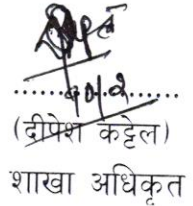 (दीपेश कट्टेल)
शाखा अधिकृत